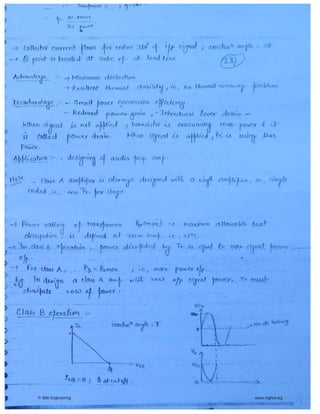 η = ac power
dc power
→ Collector current flows for entire 360° of i/p signal ; conductn angle = 2π
→ Q point is located at centre of ac load line
25
Advantage :- → Minimum distortion
→ Excellent thermal stability, ie, no thermal runaway problem
Disadvantage :- - Small power conversion efficiency
- Reduced power gain, - Introduces power drain -
When signal is not applied, transistor is consuming max. power & it
is called power drain. When signal is applied, tr. is using less
Power.
Application :- - designing of audio freq. amp.
Note - class A amplifier is always designed with a single amplifier, ie, single
ended, ie, one Tr. per stage
→ Power rating of transformer PD(max) → maximum allowable heat
dissipation, is defined at room temp. ie, 25°C.
→ In class A operation, power dissipated by Tr is equal to max signal power
o/p
→ For class A, PD = Pomax ; ie, max power o/p
Eg To design a class A amp. with 20W o/p signal power, Tr must
dissipate 20W of power.
Class B operation :-
Ic
conductn angle = π
VCE
ICQ = 0 ; Q at cutoff.
Vin
Vm
π
No ckt biasing
Vo
Vm
π
© Wiki Engineering
www.raghul.org